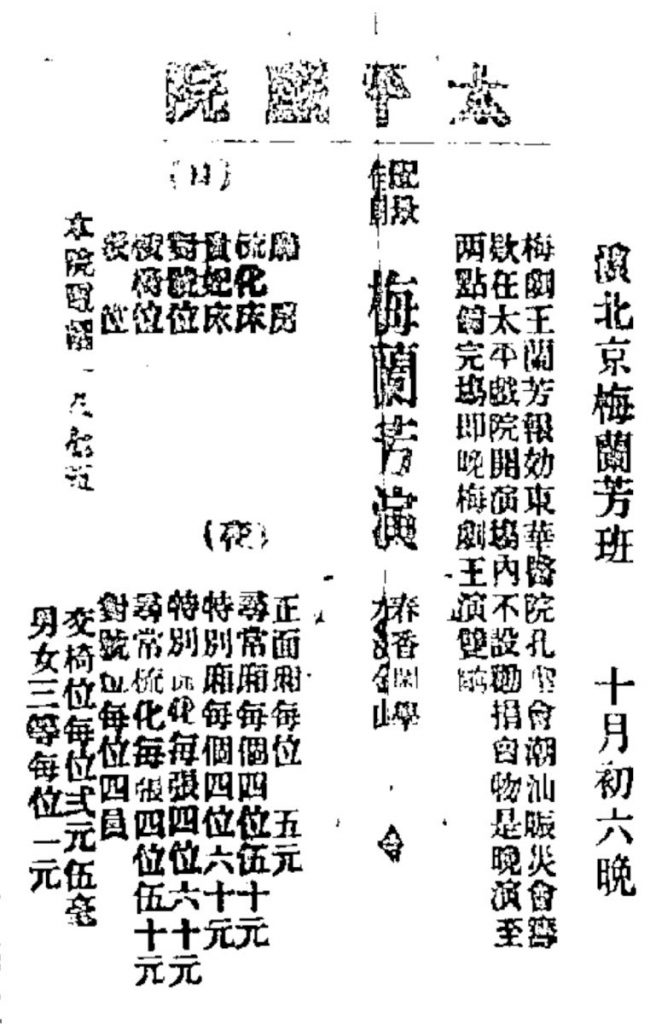 太平戲院
演北京梅蘭芳班 十月初六晚
梅劇王蘭芳報効東華醫院孔聖會潮汕賑災會籌
欵在太平戲院開演塲內不設勸捐會物是晚演至
两點鐘完塲即晚梅劇王演雙齣
配景
梅蘭芳演
春香鬧學
水漫金山
(日)
廂房
梳化床
貴妃床
對號位
椅位
位
本院電話
(夜)
正面廂每位 五元
尋常廂每個四位伍十元
特別廂每個四位六十元
特別梳化每張四位六十元
尋常梳化每張四位伍十元
對號位每位四員
交椅位每位弍元伍毫
男女三等每位一元